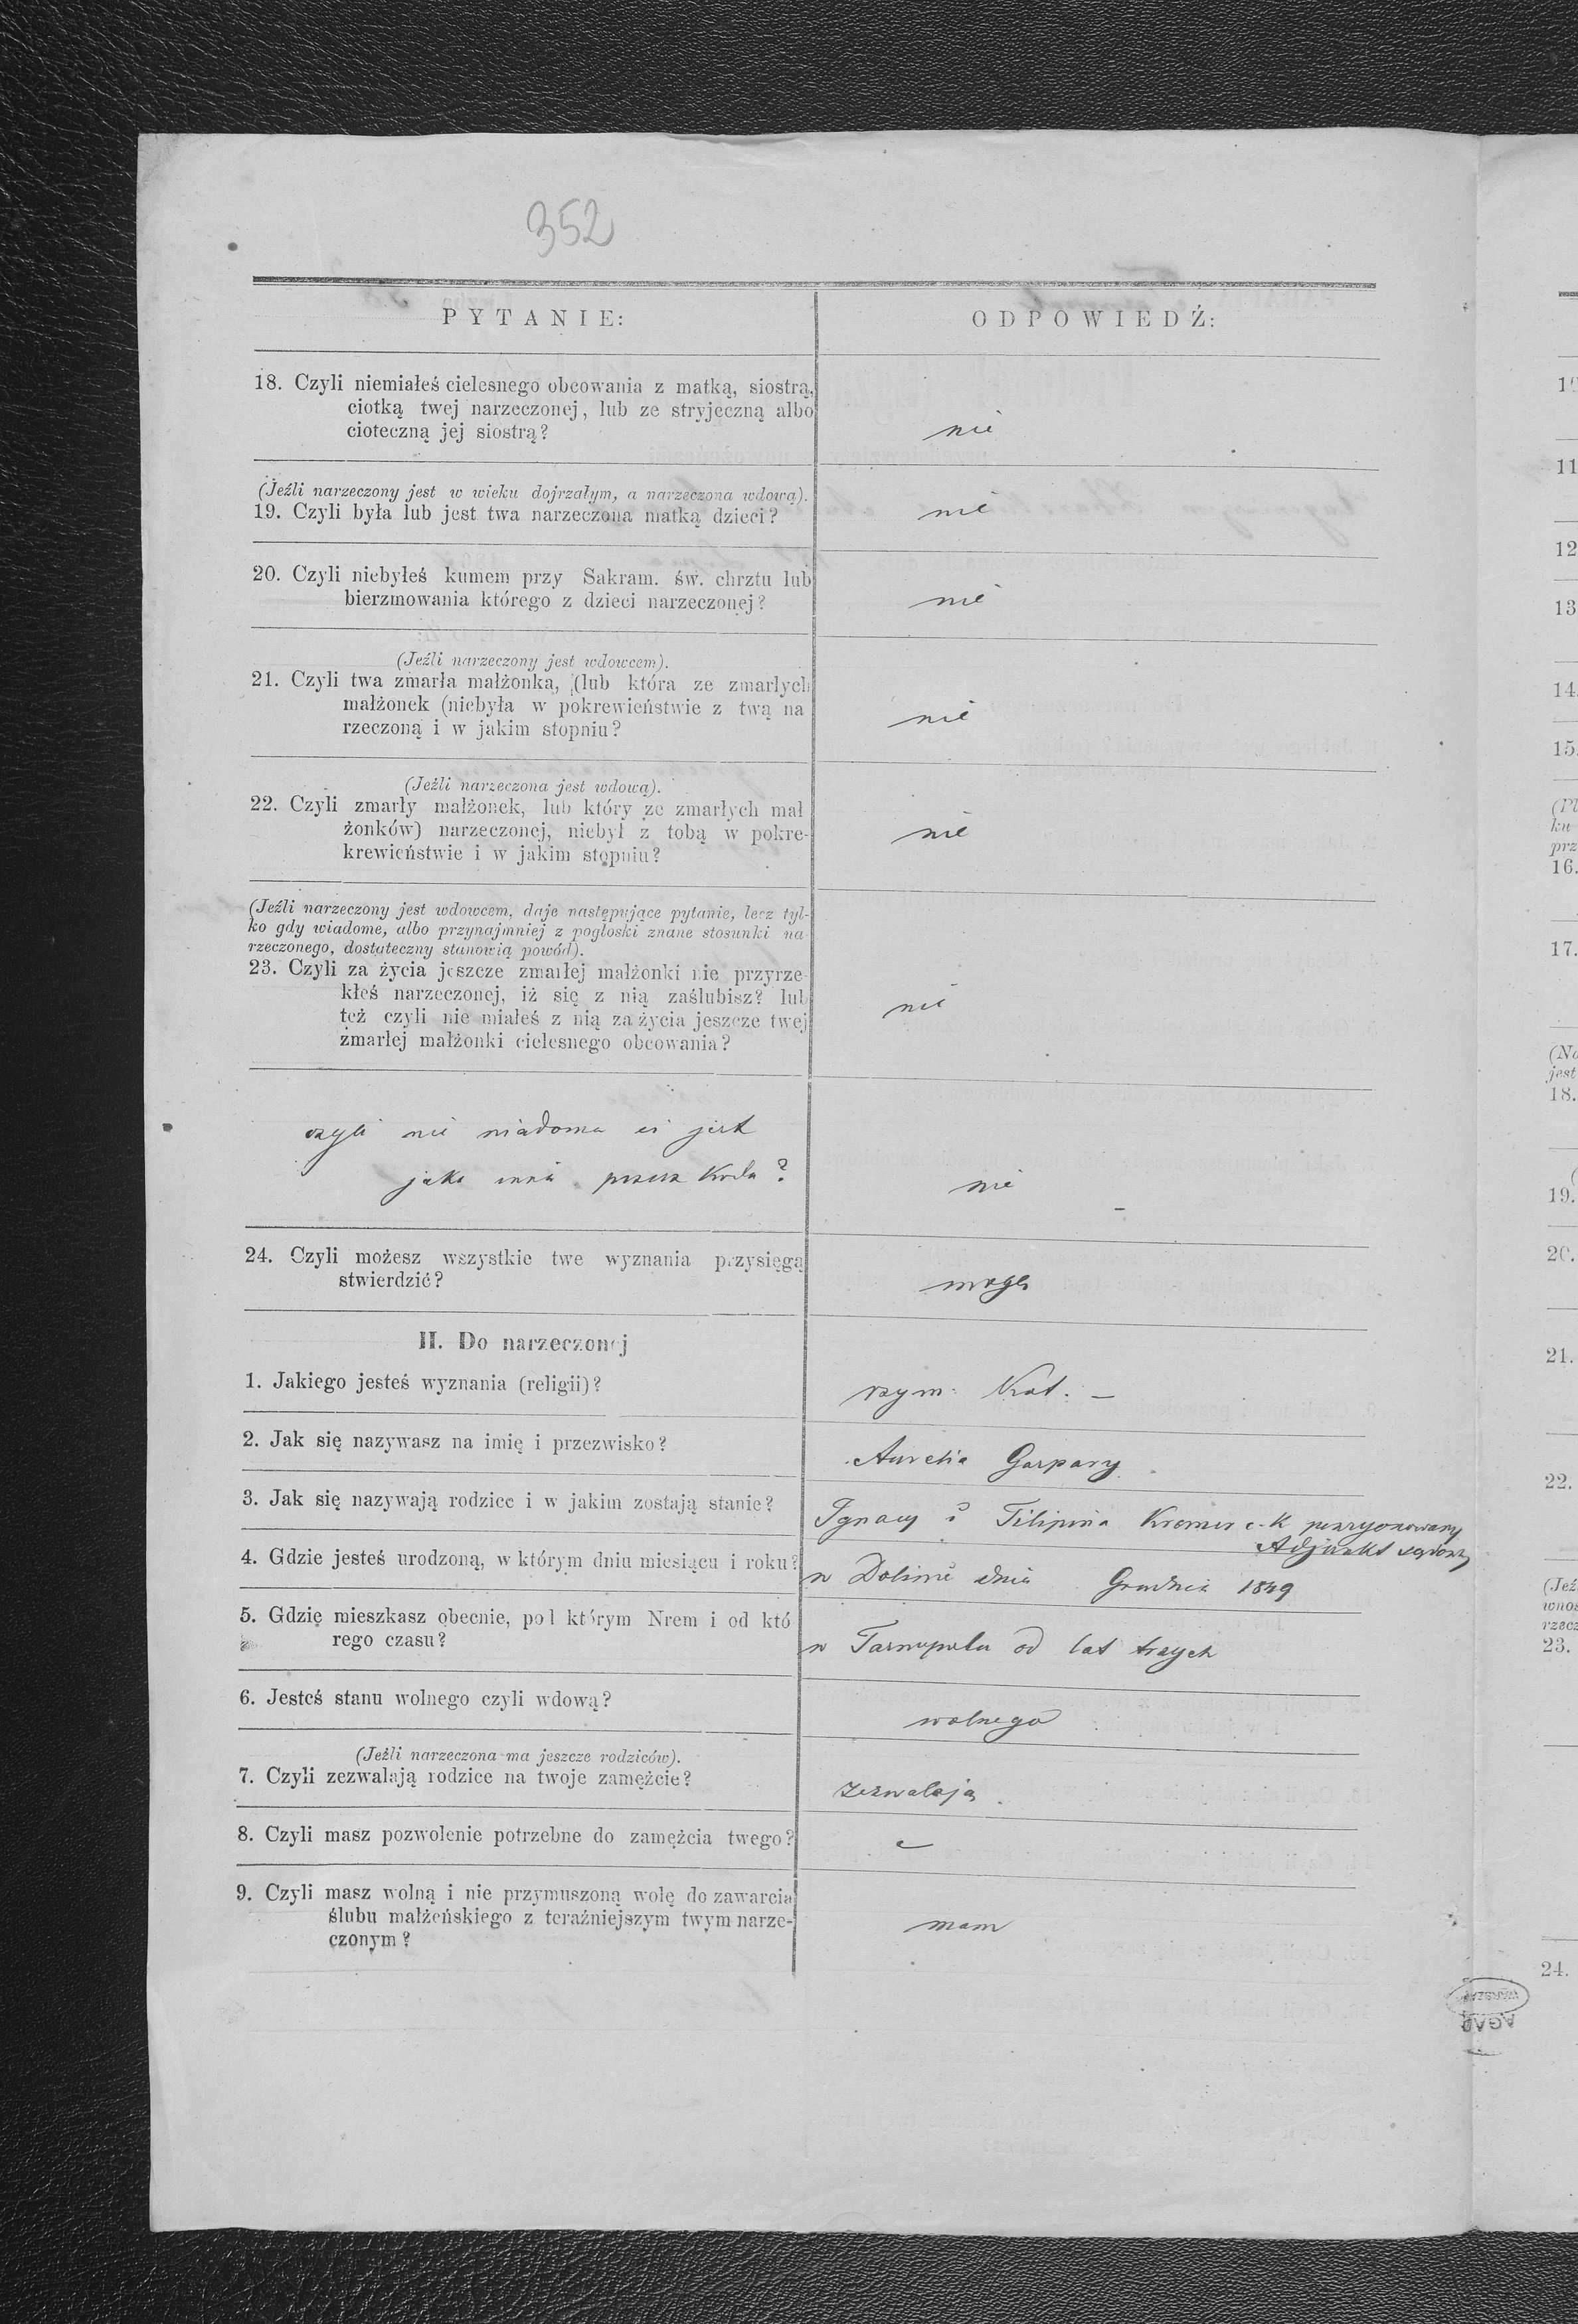 352
PYTANIE:
ODPOWIEDŹ:
18. Czyli niemiałeś cielesnego obcowania z matką, siostrą,
ciotką twej narzeczonej, lub ze stryjeczną albo
cioteczną jej siostrą?
nie
(Jeźli narzeczony jest w wieku dojrzałym, a narzeczona wdową).
19. Czyli była lub jest twa narzeczona matką dzieci?
nie
20. Czyli niebyłeś kumem przy Sakram. św. chrztu lub
bierzmowania którego z dzieci narzeczonej?
nie
(Jeźli narzeczony jest wdowcem).
21. Czyli twa zmarła małżonka, (lub która ze zmarłych
małżonek (niebyła w pokrewieństwie z twą na
rzeczoną i w jakim stopniu?
nie
(Jeżli narzeczona jest wdową).
22. Czyli zmarły małżonek, lub który ze zmarłych mał
żonków) narzeczonej, niebył z tobą w pokre-
krewieństwie i w jakim stopniu?
nie
(Jeźli narzeczony jest wdowcem, daje następujące pytanie, lecz tyl-
ko gdy wiadome, albo przynajmniej z pogłoski znane stosunki na
rzeczonego, dostateczny stanowią powód).
23. Czyli za życia jeszcze zmarłej małżonki nie przyrze-
kłeś narzeczonej, iż się z nią zaślubisz? lub
też czyli nie miałeś z nią za życia jeszcze twej
zmarłej małżonki cielesnego obcowania?
nie
czyli nie wiadoma ci jest
jaka inna przeszkoda?
nie
24. Czyli możesz wszystkie twe wyznania przysięgą
stwierdzić?
mogę
II. Do narzeczonej
1. Jakiego jesteś wyznania (religii)?
rzym. Kat. –
2. Jak się nazywasz na imię i przezwisko?
Aurelia Gaspary
3. Jak się nazywają rodzice i w jakim zostają stanie?
Ignacy i Filipina Kremer c. k. penzyonowany
Adjunkt sądowy
4. Gdzie jesteś urodzoną, w którym dniu miesiącu i roku?
w Dolinie dnia Grudnia 1849
5. Gdzie mieszkasz obecnie, pod którym Nrem i od któ
rego czasu?
w Tarnopolu od lat trzech
6. Jesteś stanu wolnego czyli wdową?
wolnego
(Jeźli narzeczona ma jeszcze rodziców).
7. Czyli zezwalają rodzice na twoje zamężcie?
zezwalają
8. Czyli masz pozwolenie potrzebne do zamężcia twego?
9. Czyli masz wolną i nie przymuszoną wolę do zawarcia
ślubu małżeńskiego z teraźniejszym twym narze-
czonym?
mam
11
12
13
14.
15.
16.
17.
18.
19.
20.
21.
22.
23.
24.
AGAD